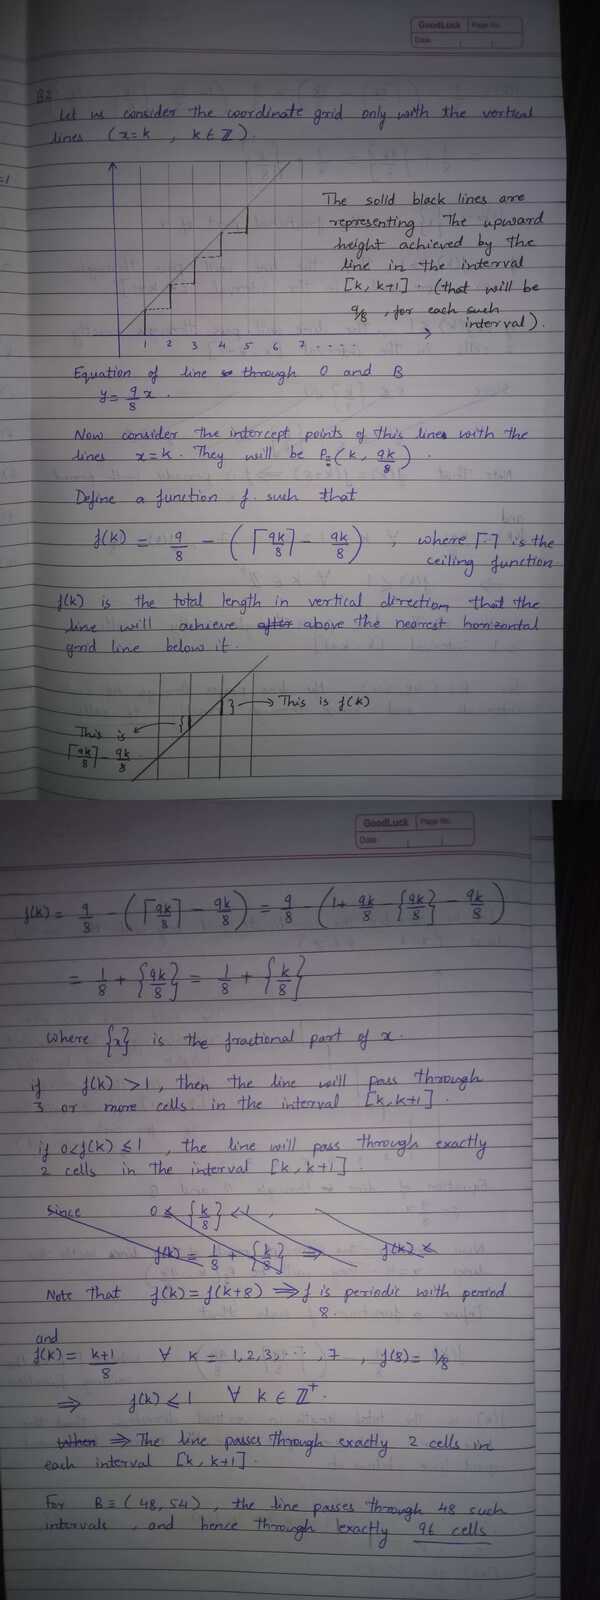 GoodLuck Page No.
Date
B2
Let us consider the coordinate grid only with the vertical
lines (x=k , k ∈ Z).
=1
The solid black lines are
representing The upward
height achieved by the
line in the interval
[k, k+1]. (that will be
9/8 , for each such
interval).
1 2 3 4 5 6 7 ....
Equation of line through O and B
y = 9/8 x.
Now consider the intercept points of this lines with the
lines x=k. They will be P≡(k, 9k/8).
Define a function f. such that
f(k) = 9/8 - (⌈9k/8⌉ - 9k/8) , where ⌈·⌉ is the
ceiling function
f(k) is the total length in vertical direction that the
line will achieve after above the nearest horizontal
grid line below it.
} → This is f(k)
This is
⌈9k/8⌉ - 9k/8
GoodLuck Page No.
Date
f(k) = 9/8 - (⌈9k/8⌉ - 9k/8) = 9/8 - (1 + 9k/8 - {9k/8} - 9k/8)
= 1/8 + {9k/8} = 1/8 + {k/8}
where {x} is the fractional part of x.
if f(k) > 1, then the line will pass through
3 or more cells in the interval [k, k+1].
if 0<f(k) ≤ 1 , the line will pass through exactly
2 cells in the interval [k, k+1].
Since 0 ≤ {k/8} < 1 ,
f(k) = 1/8 + {k/8} ⇒ f(k) ≤
Note that f(k) = f(k+8) ⇒ f is periodic with period
8.
and
f(k) = k+1/8 ∀ k = 1,2,3,...,7 , f(8) = 1/8
⇒ f(k) ≤ 1 ∀ k ∈ Z⁺.
When ⇒ The line passes through exactly 2 cells in
each interval [k, k+1].
For B ≡ (48, 54) , the line passes through 48 such
intervals , and hence through exactly 96 cells